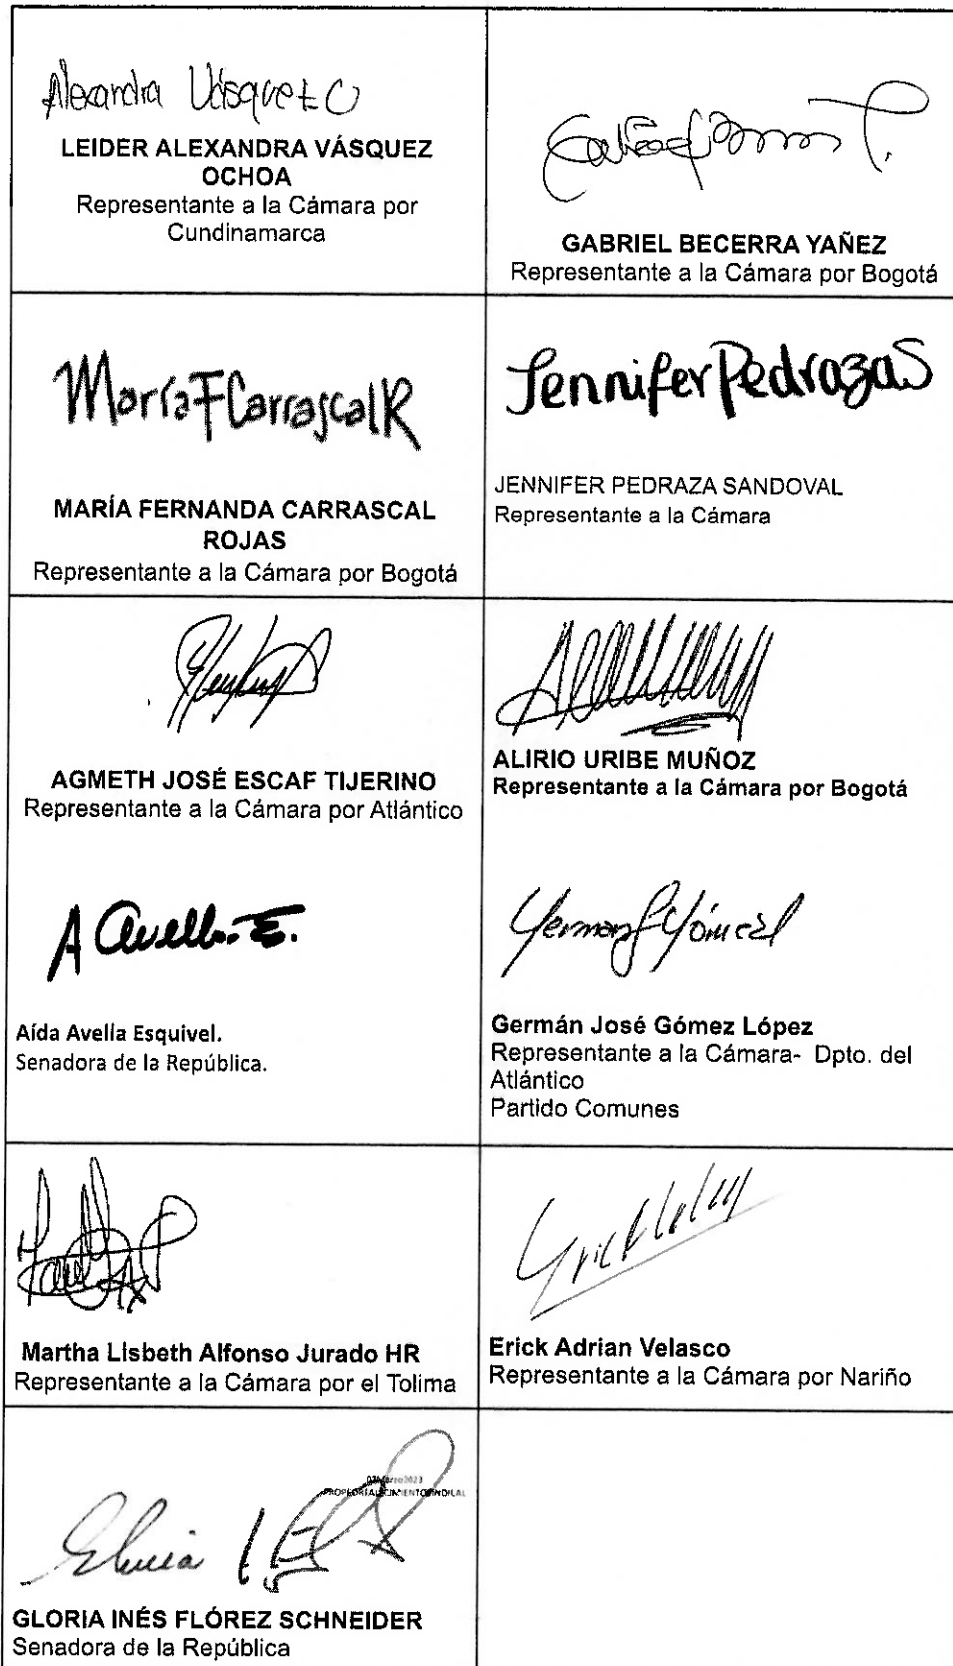 Alexandra Vásquez O
LEIDER ALEXANDRA VÁSQUEZ
OCHOA
Representante a la Cámara por
Cundinamarca
GABRIEL BECERRA YAÑEZ
Representante a la Cámara por Bogotá
María F Carrascal R
MARÍA FERNANDA CARRASCAL
ROJAS
Representante a la Cámara por Bogotá
Jennifer Pedraza S
JENNIFER PEDRAZA SANDOVAL
Representante a la Cámara
AGMETH JOSÉ ESCAF TIJERINO
Representante a la Cámara por Atlántico
ALIRIO URIBE MUÑOZ
Representante a la Cámara por Bogotá
A Avella E.
Aída Avella Esquivel.
Senadora de la República.
Germán Gómez
Germán José Gómez López
Representante a la Cámara- Dpto. del
Atlántico
Partido Comunes
Martha Lisbeth Alfonso Jurado HR
Representante a la Cámara por el Tolima
Erick Adrian Velasco
Representante a la Cámara por Nariño
GLORIA INÉS FLÓREZ SCHNEIDER
Senadora de la República